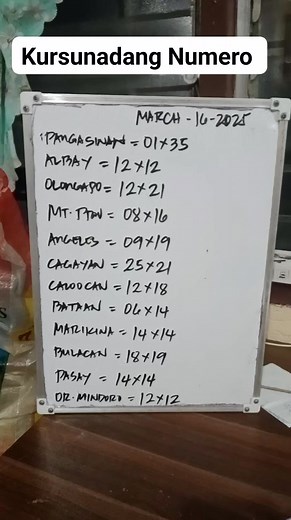 Kursunadang Numero
MARCH - 16 - 2025
PANGASINAN = 01x35
ALBAY = 12x12
OLONGAPO = 12x21
MT. PROV = 08x16
ANGELES = 09x19
CAGAYAN = 25x21
CALOOCAN = 12x18
BATAAN = 06x14
MARIKINA = 14x14
BULACAN = 18x19
PASAY = 14x14
OR. MINDORO = 12x12